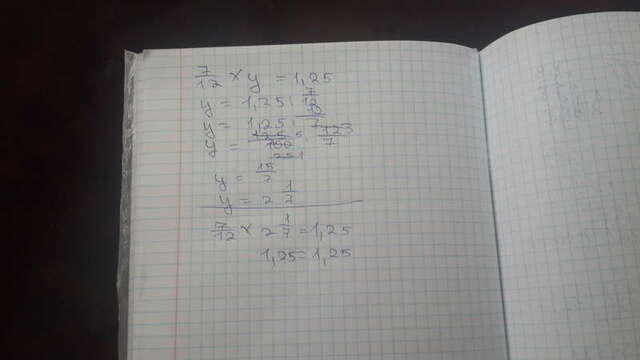 7/12 × y = 1,25
y = 1,25 : 7/12
y = 1,25 ·
y = 125/100 · 12/7
y = 15/7
y = 2 1/7
7/12 × 2 1/7 = 1,25
1,25 = 1,25